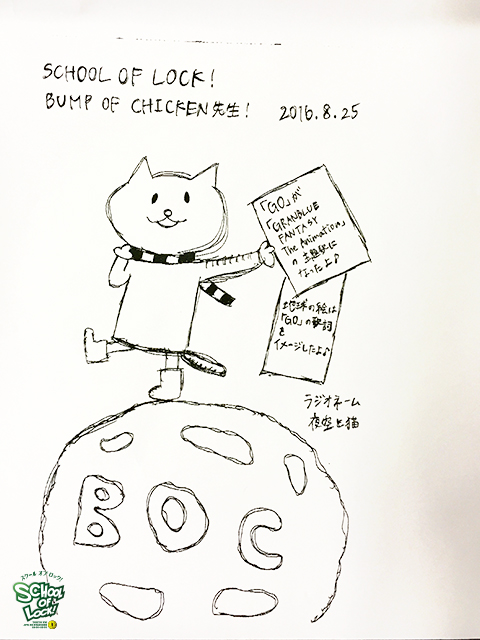 SCHOOL OF LOCK!
BUMP OF CHICKEN先生! 2016.8.25
「GO」が
「GRANBLUE
FANTASY
The Animation」
の主題歌に
なったよ♪
地球の絵は
「GO」の歌詞
を
イメージしたよ♪
ラジオネーム
夜空と猫
BOC
スクール オブ ロック!
SCHOOL
OF
LOCK!